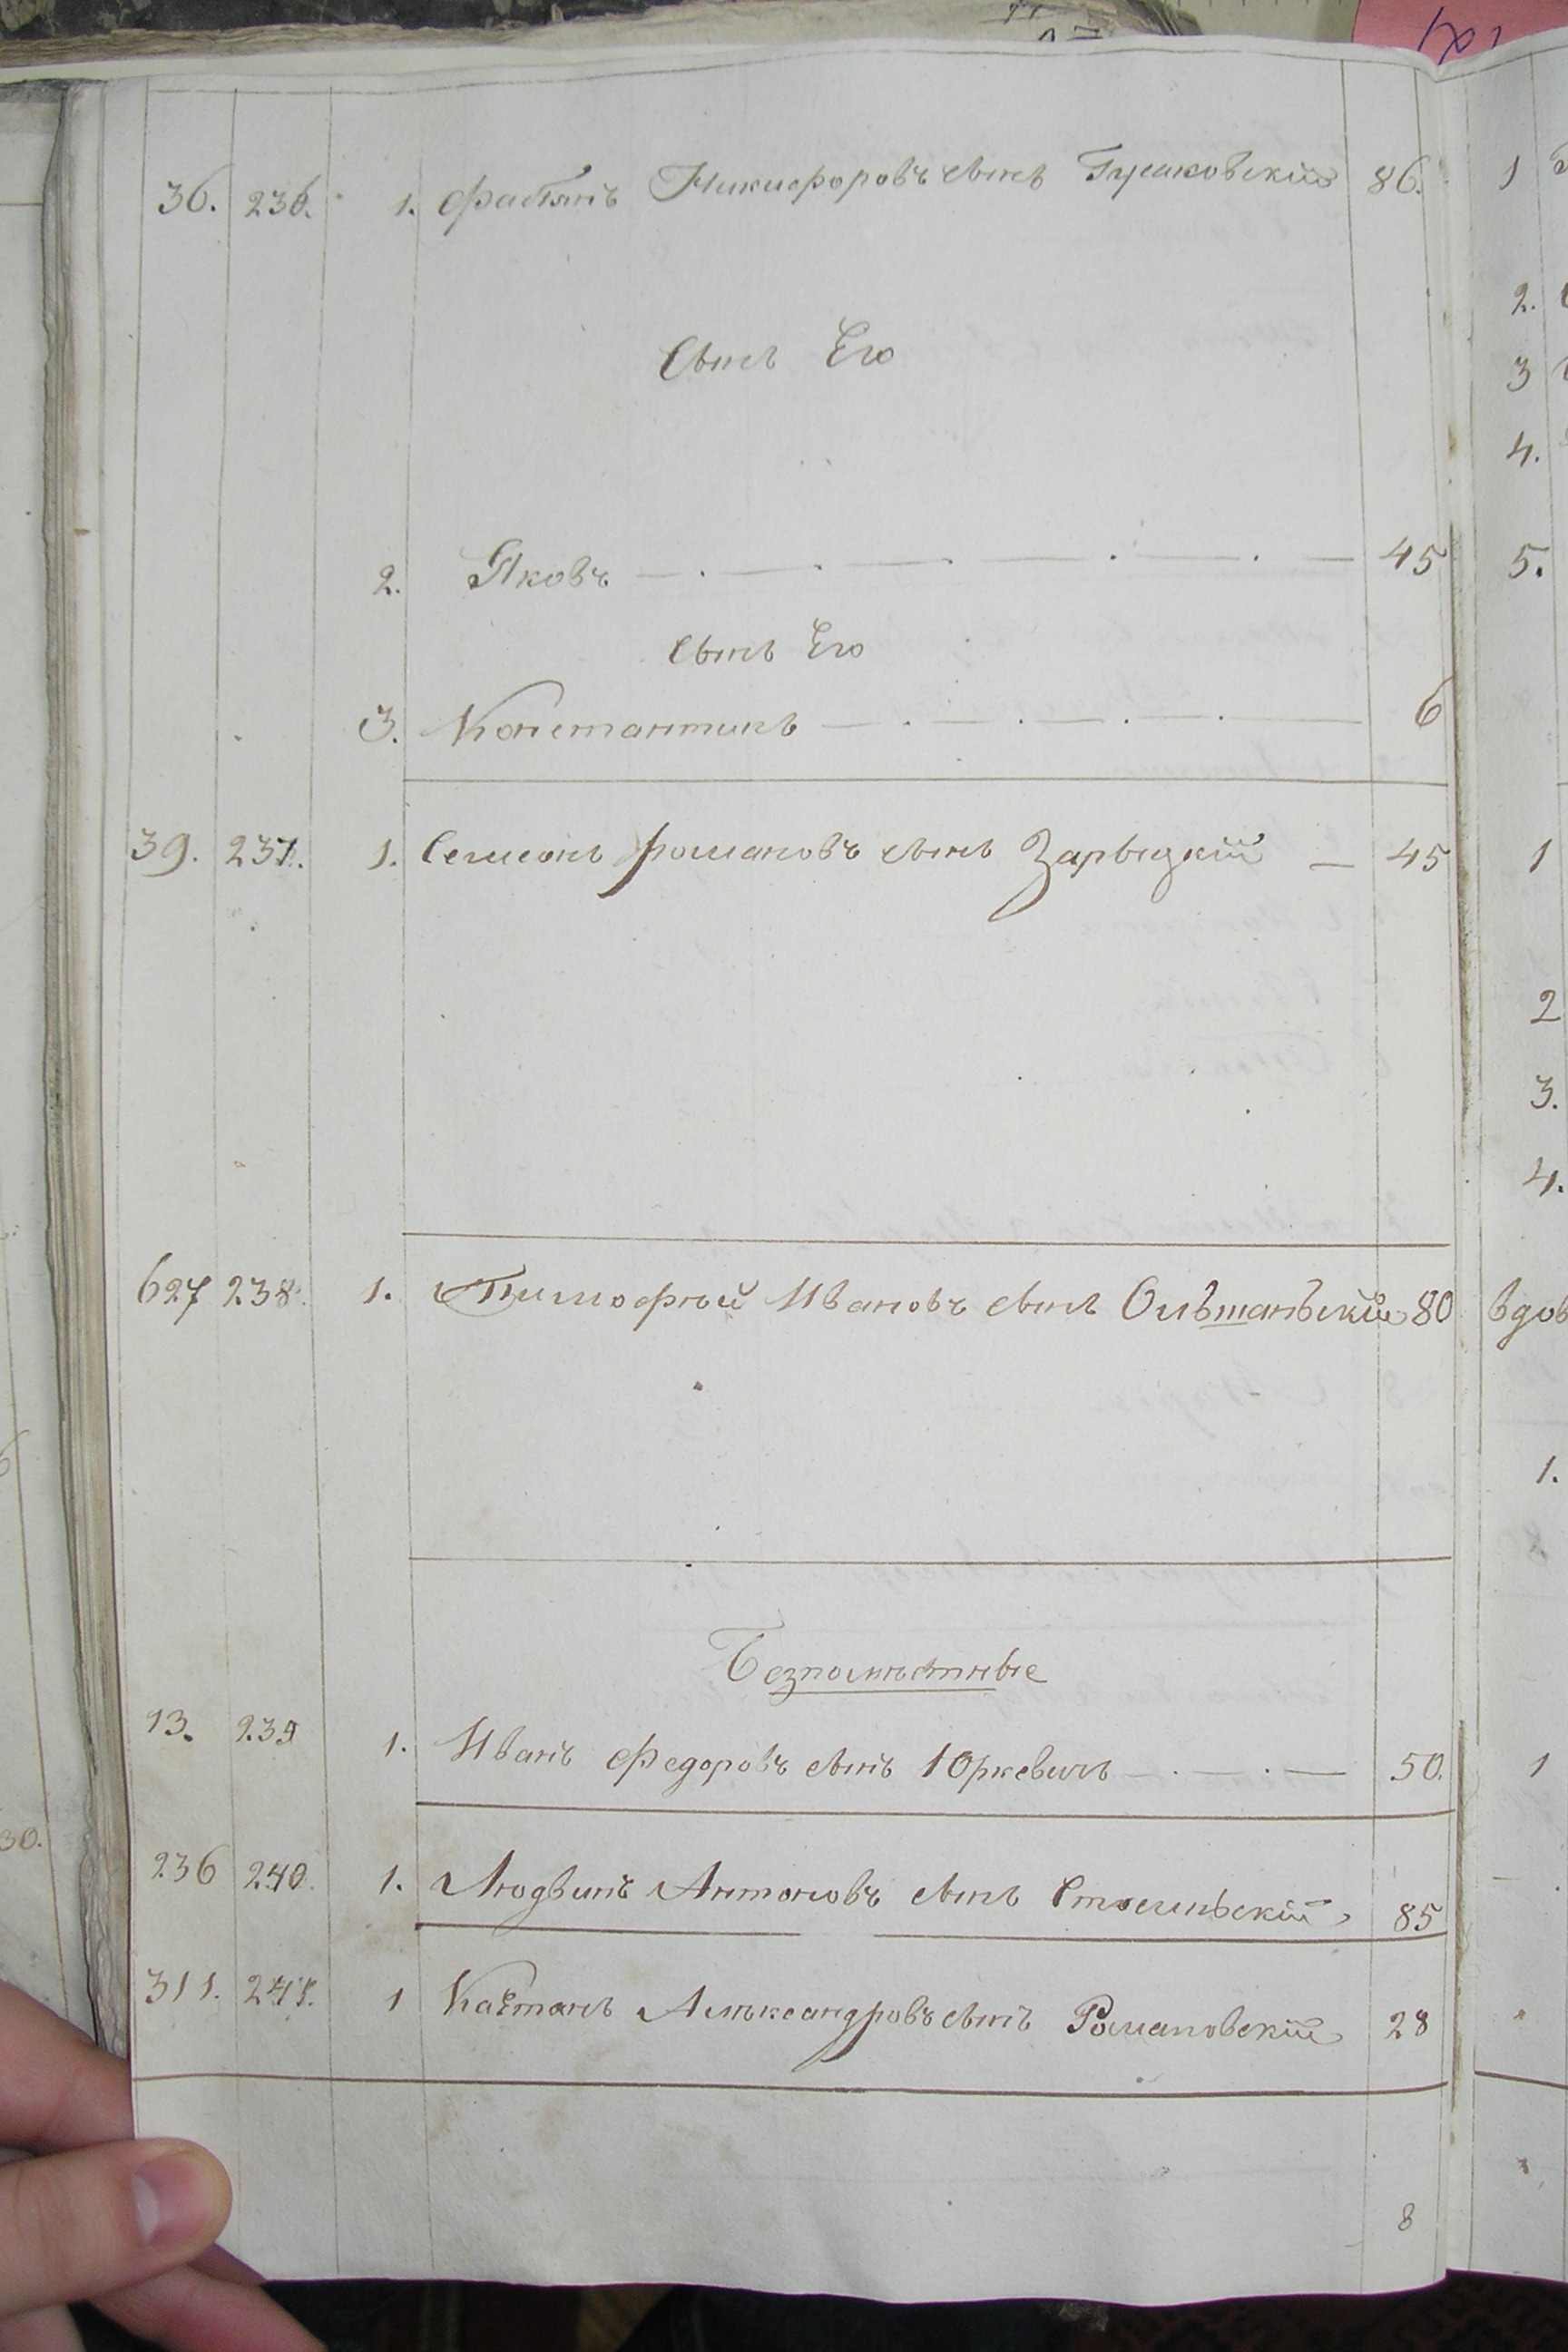 36. 236. 1. Фабіянъ Никифоровъ сынъ Гусаковскій 86.
Сынъ Его
2. Яковъ 45
Сынъ Его
3. Константинъ 6
39. 237. 1. Семионъ Романовъ сынъ Зарыцкій 45
627 238. 1. Тимофѣй Ивановъ сынъ Ольшаньскій 80
Безпомѣстные
13. 239 1. Иванъ Федоровъ сынъ Юркевичъ 50.
236 240. 1. Людвигъ Антоновъ сынъ 85
311. 241. 1 Каетанъ Алѣксандровъ сынъ Романовскій 28
8
1
2.
3
4.
5.
1
2
3.
4.
вдов
1.
1
30.